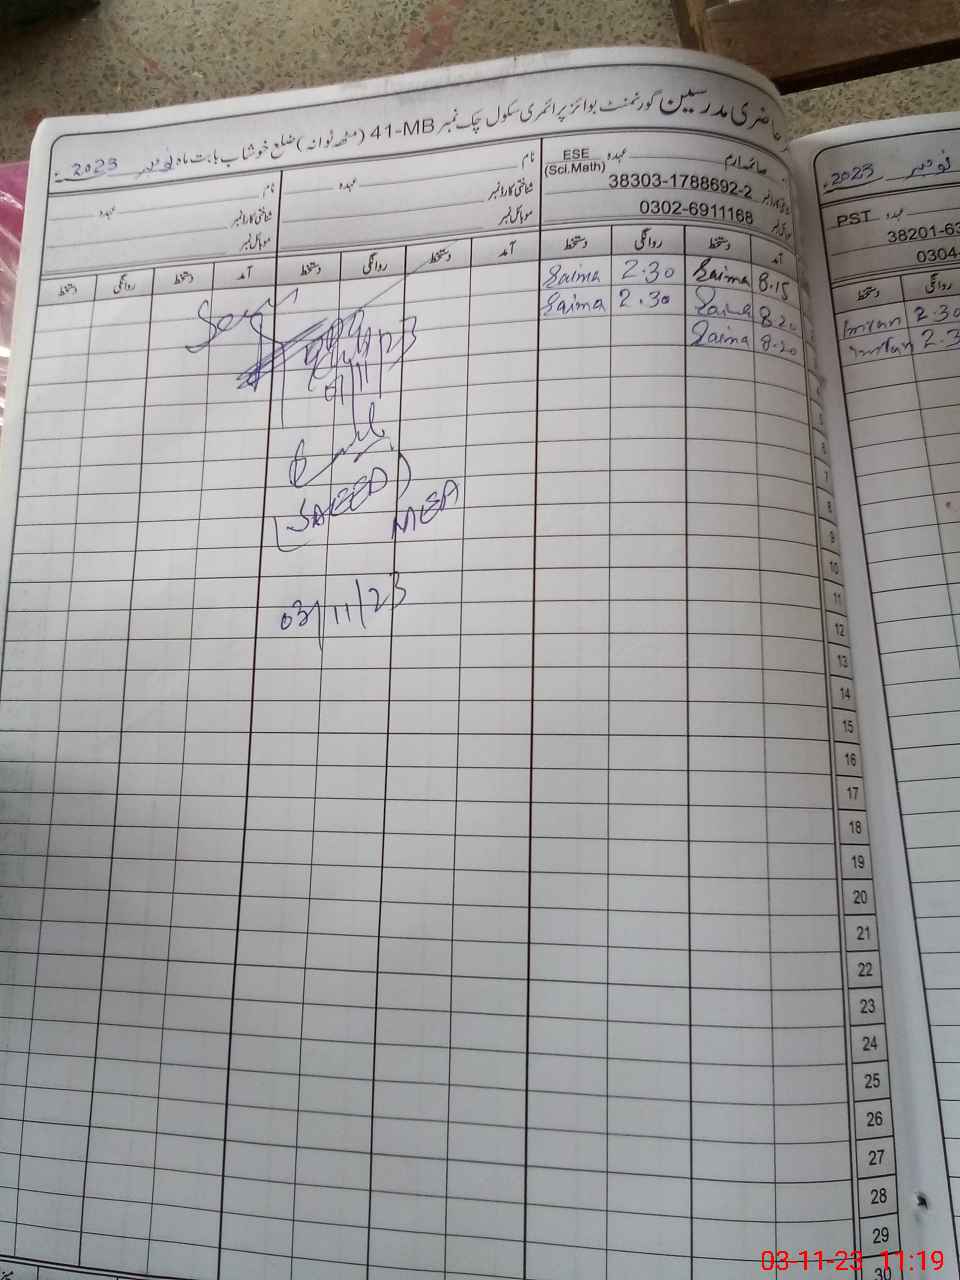 حاضری مدرسین گورنمنٹ بوائز پرائمری سکول چک نمبر 41-MB (مٹھہ ٹوانہ) ضلع خوشاب بابت ماہ نومبر 2023ء
صائمہ ارم عہدہ ESE (Sci.Math)
38303-1788692-2
موبائل نمبر 0302-6911168
نام عہدہ
شناختی کارڈ نمبر
موبائل نمبر
نام عہدہ
شناختی کارڈ نمبر
موبائل نمبر
آمد دستخط روانگی دستخط آمد دستخط روانگی دستخط آمد دستخط روانگی دستخط
8.15 Saima 2.30 Saima
8.20 Saima 2.30 Saima
8.20 Saima
01/11/23
(SAEED)
MEA
03/11/23
5
6
7
8
9
10
11
12
13
14
15
16
17
18
19
20
21
22
23
24
25
26
27
28
29
30
نومبر 2023ء
PST عہدہ
38201-63
0304-
روانگی دستخط
2.30 Imran
2.3 Imran
03-11-23 11:19